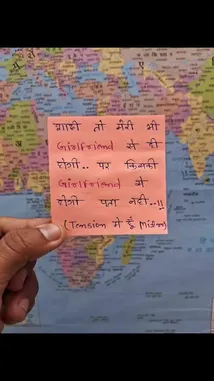 शादी तो मेरी भी
Girlfriend से ही
होगी.. पर किसकी
Girlfriend से
होगी पता नहीं..!!
(Tension में हूँ